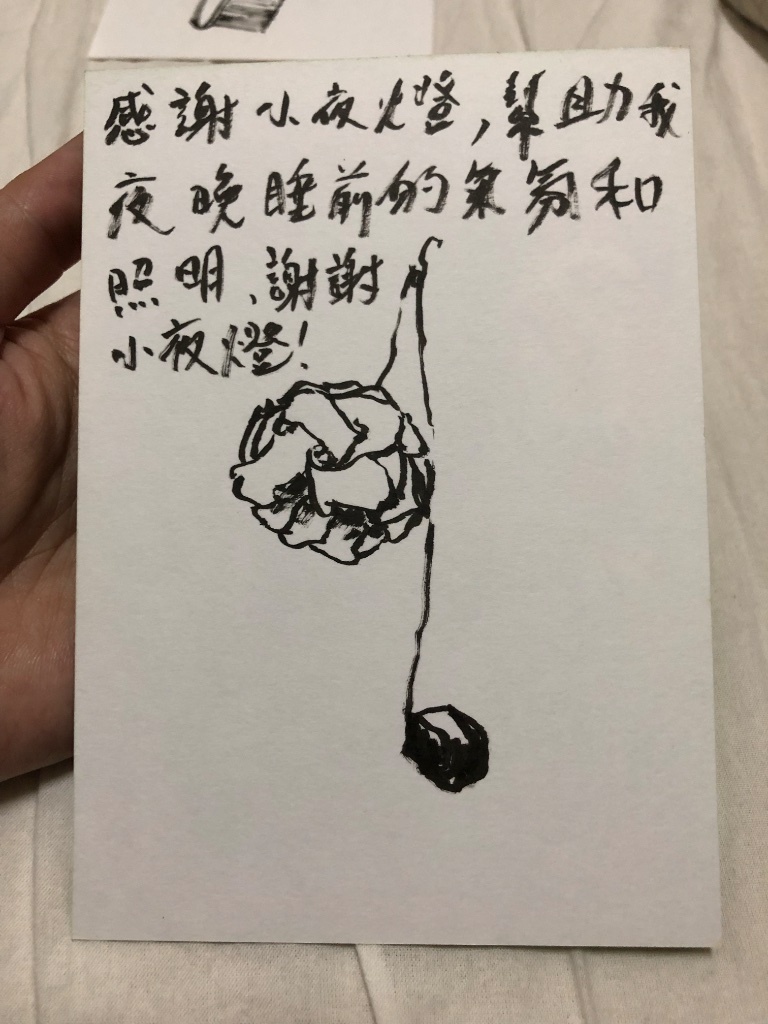 感謝小夜燈,幫助我
夜晚睡前的氣氛和
照明、謝謝
小夜燈!